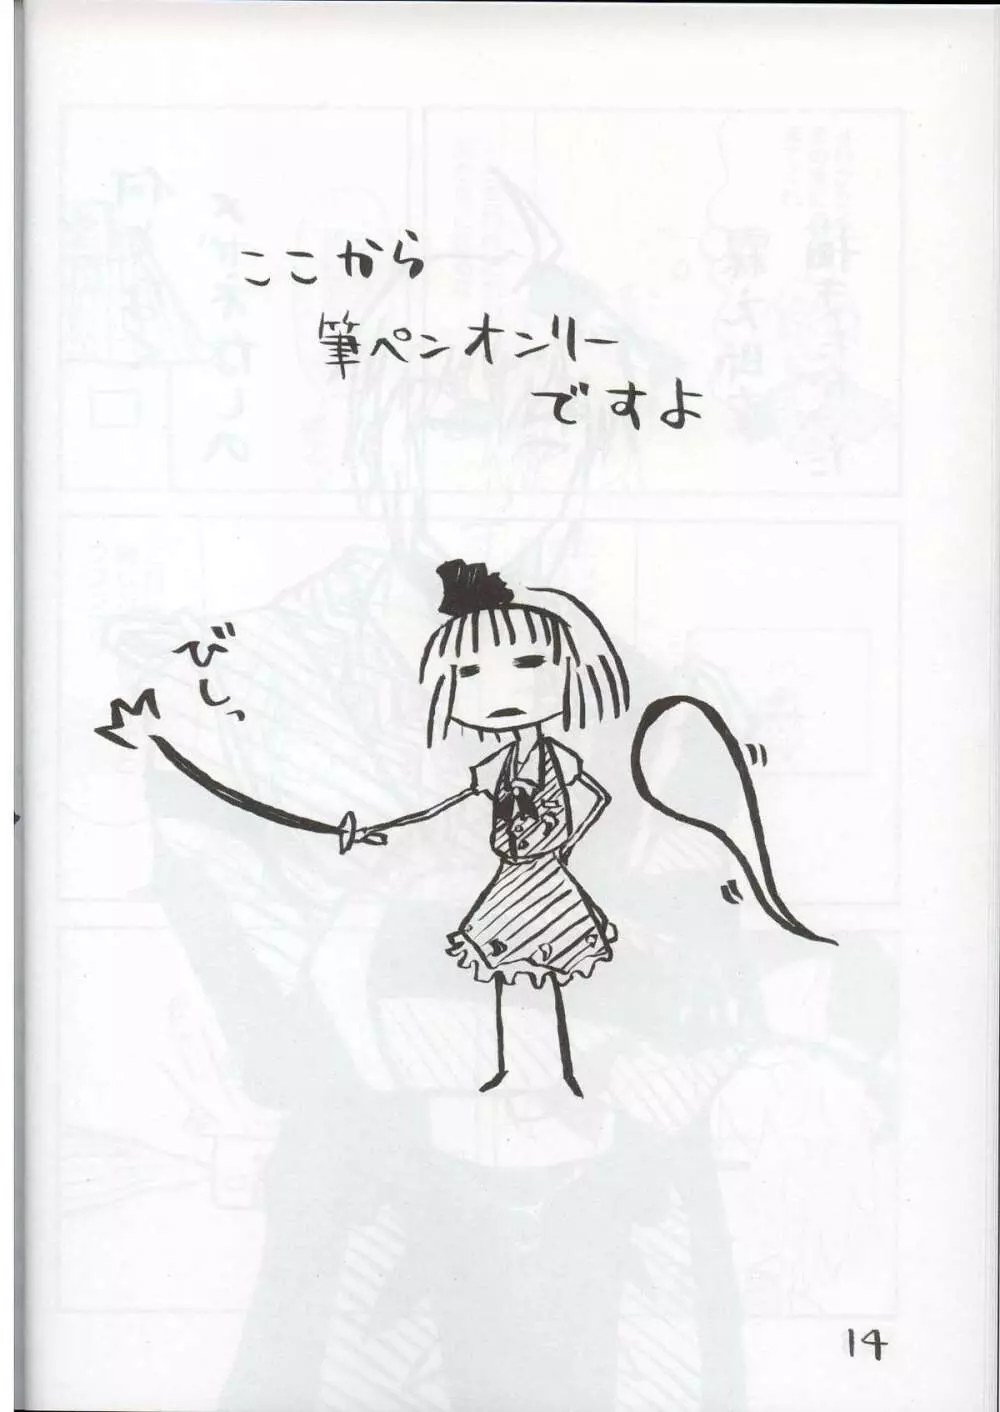 ここから
筆ペンオンリー
ですよ
びしっ
14